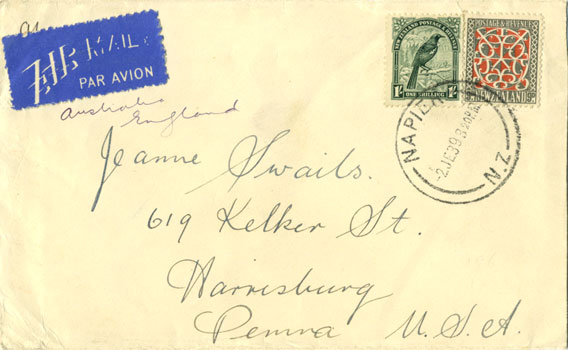 AIR MAIL
PAR AVION
Australia
England
NEW ZEALAND POSTAGE & REVENUE
1/-
ONE SHILLING
1/-
POSTAGE & REVENUE
9D NEW ZEALAND 9D
NAPIER
N.Z.
2 JE 39
Jeanne Swails.
619 Kelker St.
Harrisburg
Penna U.S.A.